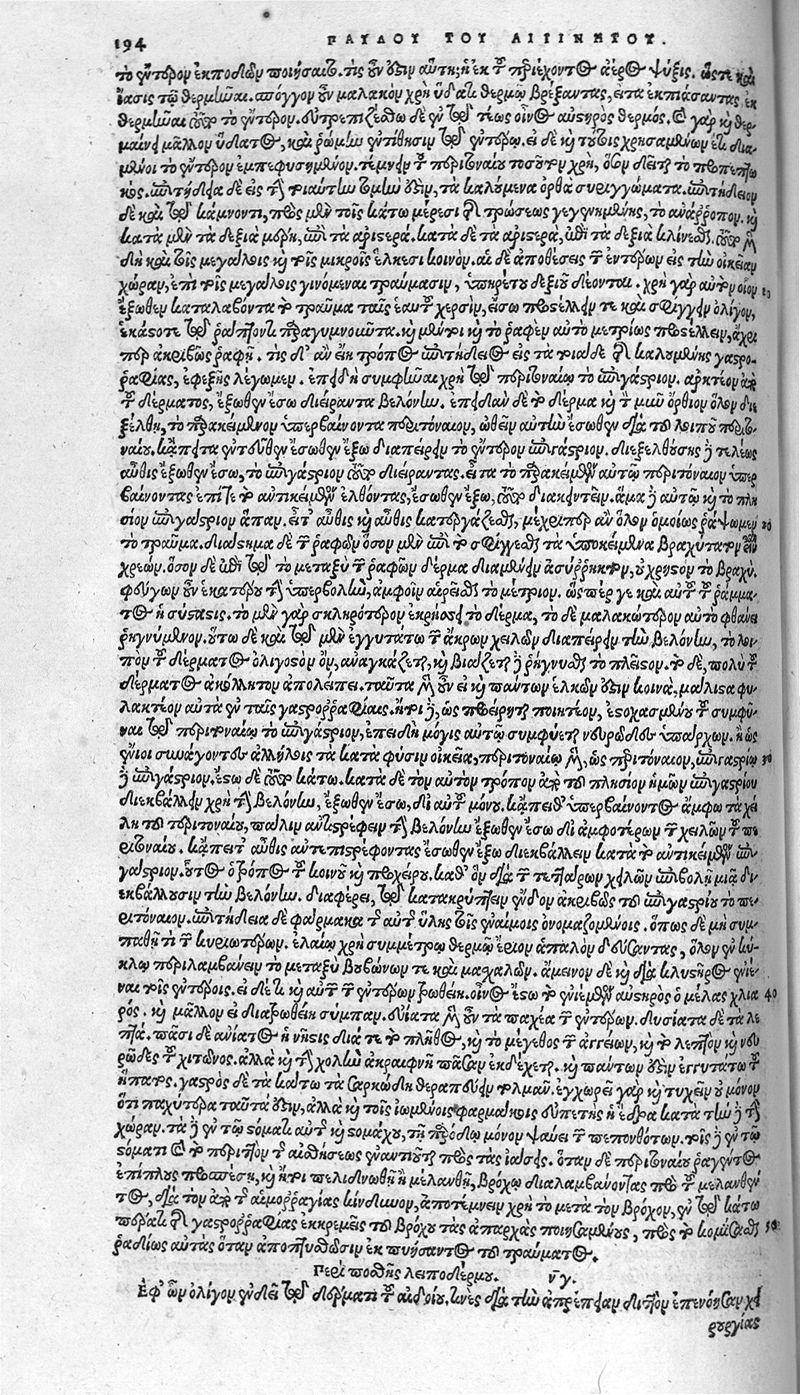 194 ΠΑΥΛΟΥ ΤΟΥ ΑΙΓΙΝΗΤΟΥ.
τὸ ἔντερον ἐκποδὼν ποιήσαιτο. τίς οὖν ἐστιν αὕτη; ἡ ἐκ τοῦ περιέχοντος ἀέρος ψύξις. ὥστε καὶ
ἴασις τῷ θερμῆναι. σπόγγον οὖν μαλακὸν χρὴ ὕδατι θερμῷ βρέξαντας, εἶτα ἐκπιάσαντας ἐκ
θερμῆναι τὸ ἔντερον. εὐτρεπιζέσθω δὲ ἐν τῷ τέως οἶνος αὐστηρὸς θερμός. καὶ γὰρ θερ-
μαίνει μᾶλλον ὕδατος, καὶ ῥώμην ἐντίθησιν τῷ ἐντέρῳ. εἰ δὲ καὶ τούτοις χρησαμένων ἔτι δια-
μένοι τὸ ἔντερον ἐμπεφυσημένον. τέμνειν τοῦ περιτοναίου τοσοῦτον χρή, ὅσον
κός. ἐπιτήδεια δὲ εἰς τὴν τοιαύτην τομήν ἐστιν, τὰ καλούμενα ὀρθὰ συριγγώματα. ἐπιτήδειον
δὲ καὶ τῷ κάμνοντι, πρὸς μὲν τοῖς κάτω μέρεσι τῆς τρώσεως γεγενημένης, τὸ ἀνάρροπον. καὶ
κατὰ μὲν τὰ δεξιὰ μέρη, ἐπὶ τὰ ἀριστερά. κατὰ δὲ τὰ ἀριστερά, ἐπὶ τὰ δεξιὰ κλίνεσθαι.
δὴ καὶ τοῖς μεγάλοις καὶ τοῖς μικροῖς ἕλκεσι κοινόν. αἱ δὲ ἀποθέσεις τῶν ἐντέρων εἰς τὴν οἰκείαν
χώραν, ἐπὶ τοῖς μεγάλοις γινόμεναι τραύμασιν, ὑπηρέτου δεξιοῦ δέονται. χρὴ γὰρ αὐτὸν οἷον
ἔξωθεν καταλαβόντα τὸ τραῦμα ταῖς ἑαυτοῦ χερσὶν, εἴσω προστέλλειν τε καὶ σφίγγειν ὀλίγον,
ἑκάστοτε τῷ ῥάπτοντι παραγυμνοῦντα. καὶ μέντοι καὶ τὸ ῥαφὲν αὐτὸ μετρίως προστέλλειν, ἄχρι
περ ἀκριβῶς ῥαφῇ. τίς δ' ἂν εἴη τρόπος ἐπιτήδειος εἰς τὰ τοιάδε τῆς καλουμένης γαστρο-
ραφίας, ἐφεξῆς λέγωμεν. ἐπειδὴ συμφῦναι χρὴ τῷ περιτοναίῳ τὸ ἐπιγάστριον. ἀρκτέον ἀπὸ
τοῦ δέρματος, ἔξωθεν ἔσω διείραντα βελόνην. ἐπειδὰν δὲ τὸ δέρμα καὶ τὸν μῦν ὄρθιον ὅλον δι-
εξέλθῃ, τὸ παρακείμενον ὑπερβαίνοντα περιτόναιον, ὠθεῖν αὐτὴν ἔσωθεν διὰ τοῦ λοιποῦ περιτο-
ναίου, κἄπειτα ἐντεῦθεν ἔσωθεν ἔξω διαπείρειν τὸ ἕτερον ἐπιγάστριον. διεξελθούσης δὲ τελέως
αὖθις ἔξωθεν ἔσω, τὸ ἐπιγάστριον διείραντας. εἶτα τὸ παρακείμενον αὐτῷ περιτόναιον ὑπερ-
βαίνοντας ἐπί τε τὸ ἀντικείμενον ἐλθόντας, ἔσωθεν ἔξω, διακεντεῖν. ἅμα δὲ αὐτῷ καὶ τὸ πλη-
σίον ἐπιγάστριον ἅπαν. εἶτ' αὖθις καὶ αὖθις κατεργάζεσθαι, μέχριπερ ἂν ὅλον ὁμοίως ῥάψωμεν
τὸ τραῦμα. διάστημα δὲ τῶν ῥαφῶν ὅσον μὲν ἐπὶ τὸ σφίγγεσθαι τὰ ὑποκείμενα βραχύτατον εἶναι
χρεών. ὅσον δὲ ἐπὶ τῷ μεταξὺ τῶν ῥαφῶν δέρμα διαμένειν ἄρρηκτον, οὐ χρηστὸν τὸ βραχύ.
φεύγων οὖν ἑκατέρου τὴν ὑπερβολὴν, ἀμφοῖν αἱρεῖσθαι τὸ μέτριον. ὥσπέρ γε καὶ αὐτοῦ τοῦ ῥάμμα-
τος ἡ σύστασις. τὸ μὲν γὰρ σκληρότερον ἐκρήσσει τὸ δέρμα, τὸ δὲ μαλακώτερον αὐτὸ φθάνει
ῥηγνύμενον. οὕτω δὲ καὶ τῷ μὲν ἐγγυτάτω τῶν ἄκρων χειλῶν διαπείρειν τὴν βελόνην, τὸ λοι-
πὸν τοῦ δέρματος ὀλιγοστὸν ὂν, ἀναγκάζεται, καὶ βιάζεται ῥήγνυσθαι τὸ πλεῖστον. τὸ δὲ, πολὺ τοῦ
δέρματος ἀκόλλητον ἀπολείπει. ταῦτα μὲν οὖν εἰ καὶ πάντων ἑλκῶν ἐστιν κοινὰ, μάλιστα φυ-
λακτέον αὐτὰ ἐν ταῖς γαστρορραφίαις. ἤτοι δὲ, ὡς προείρηται ποιητέον, ἐστοχασμένου τοῦ συμφῦ-
ναι τῷ περιτοναίῳ τὸ ἐπιγάστριον, ἐπειδὴ μόγις αὐτῷ συμφύεται νευρῶδες ὑπάρχων. ἢ ὡς
ἔνιοι συνάγοντες ἀλλήλοις τὰ κατὰ φύσιν οἰκεῖα, περιτοναίῳ μὲν, ὡς περιτόναιον, ἐπιγαστρίῳ
δὲ ἐπιγάστριον, ἔσω δὲ κάτω. κατὰ δὲ τὸν αὐτὸν τρόπον ἀπὸ τοῦ πλησίον ἡμῶν ἐπιγαστρίου
διεκβάλλειν χρὴ τὴν βελόνην, ἔξωθεν ἔσω, δι' αὐτοῦ μόνου. κἄπειθ' ὑπερβαίνοντος ἄμφω τὰ χεί-
λη τοῦ περιτοναίου, πάλιν ἀντιστρέφειν τὴν βελόνην ἔξωθεν ἔσω δι' ἀμφοτέρων τῶν χειλῶν τοῦ πε-
ριτοναίου. κἄπειτ' αὖθις αὖτ' ἐπιστρέφοντας ἔσωθεν ἔξω διεκβάλλειν κατὰ τὸ ἀντικείμενον ἐπι-
γάστριον. οὗτος ὁ τρόπος τοῦ κοινοῦ καὶ προχείρου. καθ' ὃν διὰ τῶν τεττάρων χειλῶν ἐπιβολῇ μιᾷ δι-
εκβάλλουσιν τὴν βελόνην. διαφέρει, τῷ κατακρύπτειν ἔνδον ἀκριβῶς τοῦ ἐπιγαστρίου τὸ πε-
ριτόναιον. ἐπιτήδεια δὲ φάρμακα τῆς αὐτῆς ὕλης τοῖς ἐναίμοις ὀνομαζομένοις. ὅπως δὲ μὴ συμ-
παθῇ τι τῶν κυριωτέρων. ἐλαίῳ χρὴ συμμέτρως θερμῷ ἔριον ἁπαλὸν δεύσαντας, ὅλον ἐν κύ-
κλῳ περιλαμβάνειν τὸ μεταξὺ βουβώνων τε καὶ μασχαλῶν. ἄμεινον δὲ καὶ διὰ κλυστῆρος ἐνιέ-
ναι τοῖς ἐντέροις. εἰ δέ τι καὶ αὐτῶν τῶν ἐντέρων τρωθείη. οἶνος ἔστω τὸ ἐνιέμενον αὐστηρὸς ὁ μέλας χλια-
ρός. καὶ μᾶλλον εἰ διατρωθείη σύμπαν. εὐίατα μὲν οὖν τὰ παχέα τῶν ἐντέρων. δυσίατα δὲ τὰ λε-
πτά. πᾶσι δὲ ἀνίατος ἡ νῆστις διά τε τὸ πλῆθος, καὶ τὸ μέγεθος τῶν ἀγγείων, καὶ τὸ λεπτὸν καὶ νευ-
ρῶδες τοῦ χιτῶνος. ἀλλὰ καὶ τὴν χολὴν ἀκραιφνῆ πᾶσαν ἐκδέχεται. καὶ πάντων ἐστὶν ἐγγυτάτω τοῦ
ἥπατος. γαστρὸς δὲ τὰ κάτω τὰ σαρκώδη θεραπεύειν τολμᾶν. ἐγχωρεῖ γὰρ καὶ τυχεῖν οὐ μόνον
ὅτι παχύτερα ταῦτά ἐστιν, ἀλλὰ καὶ τοῖς ἰωμένοις φαρμάκοις εὐπετὴς ἡ ἕδρα κατὰ τήνδε τὴν
χώραν. τὰ δ' ἐν τῷ στόματι αὐτῆς καὶ στομάχου, τῇ παρόδῳ μόνον ψαύει τῶν πεπονθότων. τοῖς δ' ἐν τῷ
στόματι καὶ τὸ περιττὸν τῆς αἰσθήσεως ἐναντιοῦται πρὸς τὰς ἰάσεις. ὅταν δὲ περιτοναίου ῥαγέντος
ἐπίπλους προπέσῃ, καὶ ἤτοι πελιδνωθῇ ἢ μελανθῇ, βρόχῳ διαλαμβάνοντας πρὸ τοῦ μελανθέν-
τος, διὰ τὸν ἀπὸ τῆς αἱμορραγίας κίνδυνον, ἀποτέμνειν χρὴ τὸ μετὰ τὸν βρόχον, ἐν τῷ κάτω
πέρατι τῆς γαστρορραφίας ἐκκρεμεῖς τοῦ βρόχου τὰς ἀπαρχὰς ποιησαμένους, πρὸς τὸ κομίζεσθαι
ῥᾳδίως αὐτὰς ὅταν ἀποπτυσθῶσιν ἐκπυήσαντος τοῦ τραύματος.
Περὶ πόσθης λειποδέρμου. νγ.
Ἐφ' ὧν ὀλίγον ἐνδεῖ τῷ δέρματι τοῦ αἰδοίου. τινὲς διὰ τὴν ἀπρέπειαν διττὸν ἐπενόησαν χει-
ρουργίας